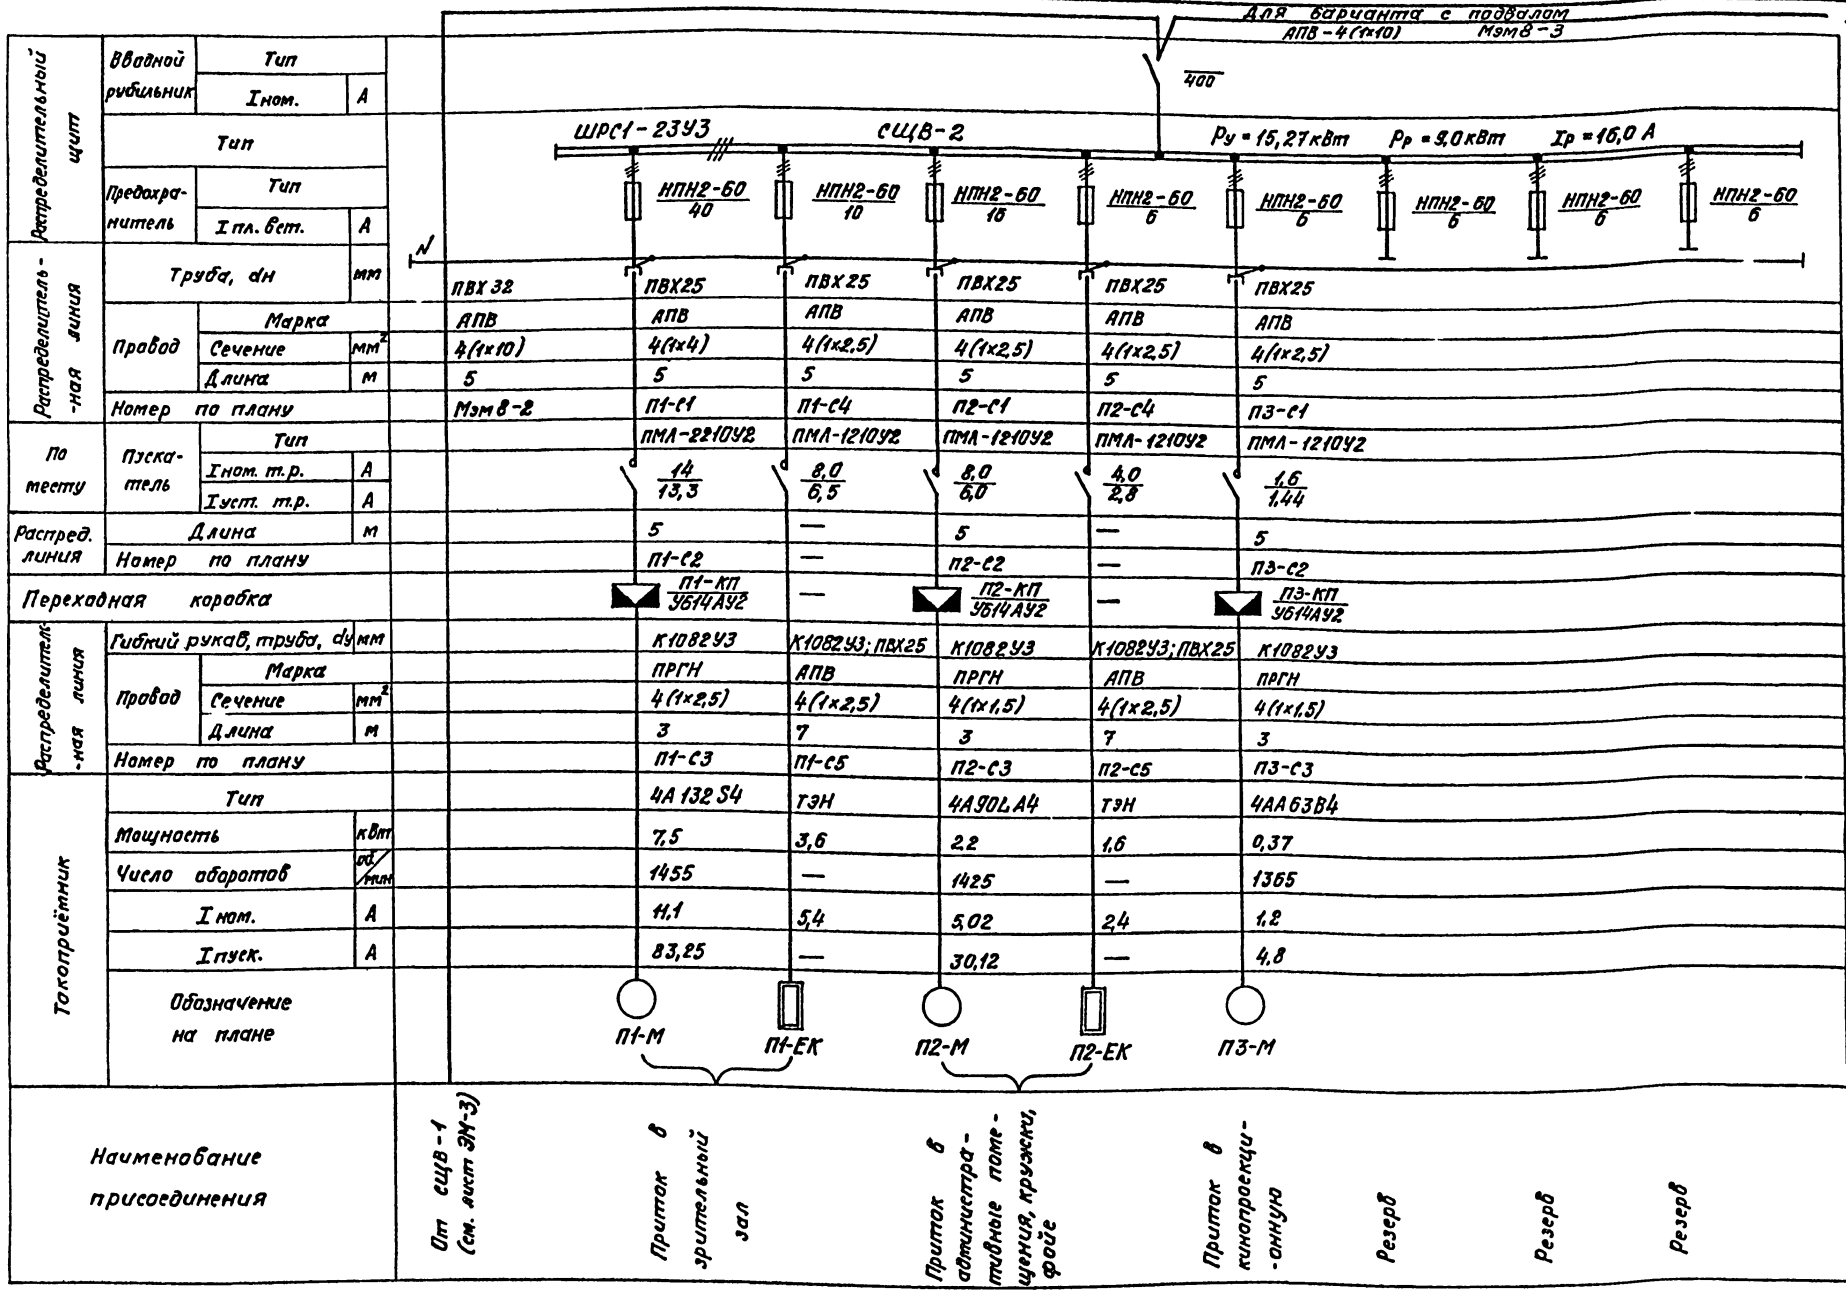 Для варианта с подвалом
АПВ-4(1×10) Мэм8-3
400
Распределительный щит
Вводной рубильник
Тип
Iном. А
Тип
ШРС1-23У3 СЩВ-2 Ру=15,27кВт Рр=9,0кВт Iр=16,0 А
Предохранитель
Тип
Iпл. вст. А
НПН2-60 НПН2-60 НПН2-60 НПН2-60 НПН2-60 НПН2-60 НПН2-60 НПН2-60
40 10 16 6 6 6 6 6
N
Распределитель-
-ная линия
Труба, dн мм
ПВХ32 ПВХ25 ПВХ25 ПВХ25 ПВХ25 ПВХ25
Провод
Марка
АПВ АПВ АПВ АПВ АПВ АПВ
Сечение мм²
4(1×10) 4(1×4) 4(1×2,5) 4(1×2,5) 4(1×2,5) 4(1×2,5)
Длина м
5 5 5 5 5 5
Номер по плану
Мэм8-2 П1-С1 П1-С4 П2-С1 П2-С4 П3-С1
По месту
Пускатель
Тип
ПМЛ-2210У2 ПМЛ-1210У2 ПМЛ-1210У2 ПМЛ-1210У2 ПМЛ-1210У2
Iном. т.р. А
14 8,0 8,0 4,0 1,6
Iуст. т.р. А
13,3 6,5 6,0 2,8 1,44
Распред. линия
Длина м
5 — 5 — 5
Номер по плану
П1-С2 — П2-С2 — П3-С2
Переходная коробка
П1-КП — П2-КП — П3-КП
У614АУ2 У614АУ2 У614АУ2
Распределитель-
-ная линия
Гибкий рукав, труба, dу мм
К1082У3 К1082У3; ПВХ25 К1082У3 К1082У3; ПВХ25 К1082У3
Провод
Марка
ПРГН АПВ ПРГН АПВ ПРГН
Сечение мм²
4(1×2,5) 4(1×2,5) 4(1×1,5) 4(1×2,5) 4(1×1,5)
Длина м
3 7 3 7 3
Номер по плану
П1-С3 П1-С5 П2-С3 П2-С5 П3-С3
Токоприёмник
Тип
4А132S4 ТЭН 4А90LА4 ТЭН 4АА63В4
Мощность кВт
7,5 3,6 2,2 1,6 0,37
Число оборотов об/мин
1455 — 1425 — 1365
Iном. А
11,1 5,4 5,02 2,4 1,2
Iпуск. А
83,25 — 30,12 — 4,8
Обозначение
на плане
П1-М П1-ЕК П2-М П2-ЕК П3-М
Наименование
присоединения
От СЩВ-1
(см. лист ЭМ-3)
Приток в
зрительный
зал
Приток в
администра-
тивные поме-
щения, кружски,
фойе
Приток в
кинопроекци-
-онную
Резерв
Резерв
Резерв